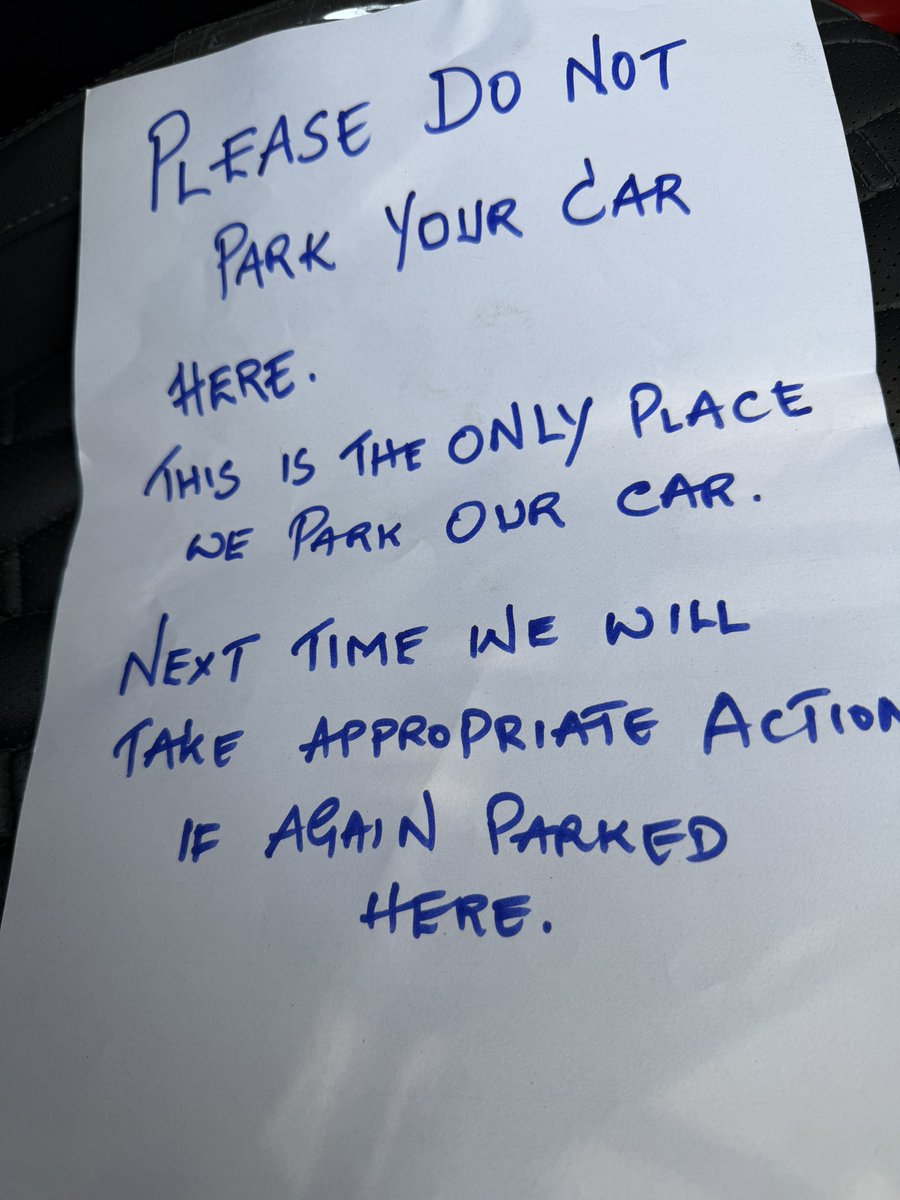 PLEASE DO NOT
PARK YOUR CAR
HERE.
THIS IS THE ONLY PLACE
WE PARK OUR CAR.
NEXT TIME WE WILL
TAKE APPROPRIATE ACTION
IF AGAIN PARKED
HERE.